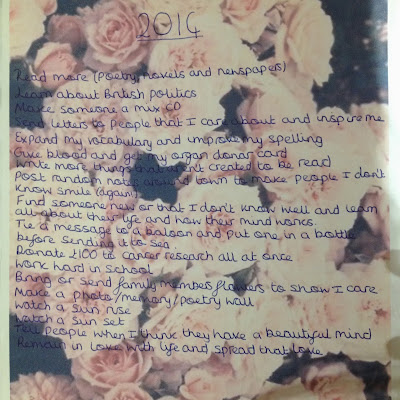 2014
Read more (Poetry, novels and newspapers)
Learn about British politics
Make someone a mix CD
Send letters to people that I care about and inspire me
Expand my vocabulary and improve my spelling
Give blood and get my organ donar card
Write more things that aren't created to be read
Post random notes around town to make people I don't
know smile (again)
Find someone new or that I don't know well and learn
all about their life and how their mind works.
Tie a message to a baloon and put one in a bottle
before sending it to sea
Donate £100 to cancer research all at once
Work hard in school
Bring or send family member flowers to show I care
Make a photo/memory/poetry wall
Watch a sun rise
Watch a sun set
Tell people when I think they have a beautiful mind
Remain in love with life and spread that love